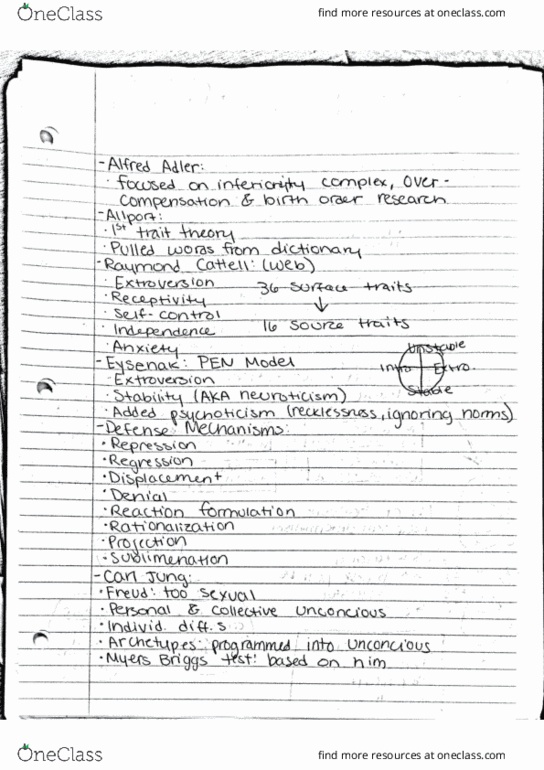 OneClass
find more resources at oneclass.com
- Alfred Adler:
· focused on inferiority complex, over-
compensation & birth order research
- Allport:
· 1st trait theory
· Pulled words from dictionary
- Raymond Cattell: (web)
· Extroversion 36 surface traits
· Receptivity ↓
· Self-control
· Independence 16 source traits
· Anxiety
Unstable
- Eysenak: PEN Model
Intro Extro.
· Extroversion
Stable
· Stability (AKA neuroticism)
· Added psychoticism (recklessness, ignoring norms)
- Defense Mechanisms:
· Repression
· Regression
· Displacement
· Denial
· Reaction formulation
· Rationalization
· Projection
· Sublimenation
- Carl Jung:
· Freud: too sexual
· Personal & collective unconcious
· Individ. diff.s
· Archetypes: programmed into unconcious
· Myers Briggs test: based on him
OneClass
find more resources at oneclass.com